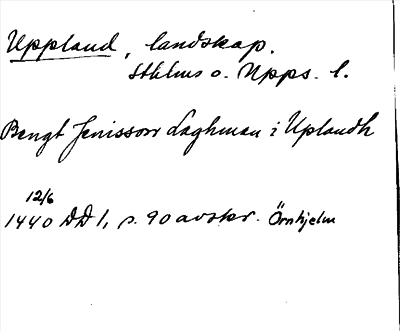 Uppland, landskap.
Sthlms o. Upps. l.
Bengt Jenisson Laghman i Uplandh
12/6
1440 DD 1, s. 90 avskr. Örnhjelm